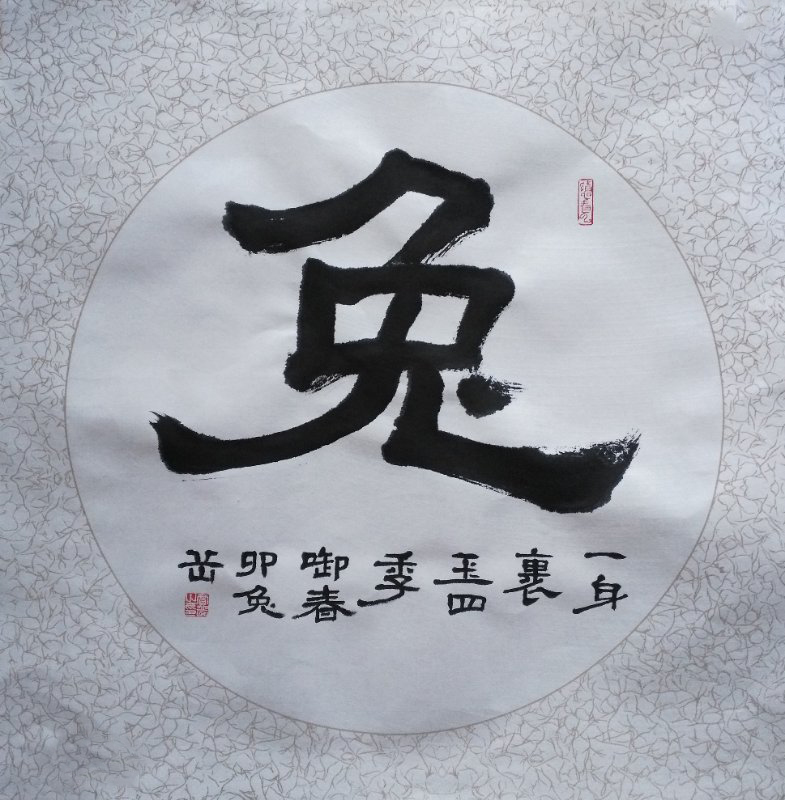 兔
一身
裹
玉四
季
啣春
卯兔